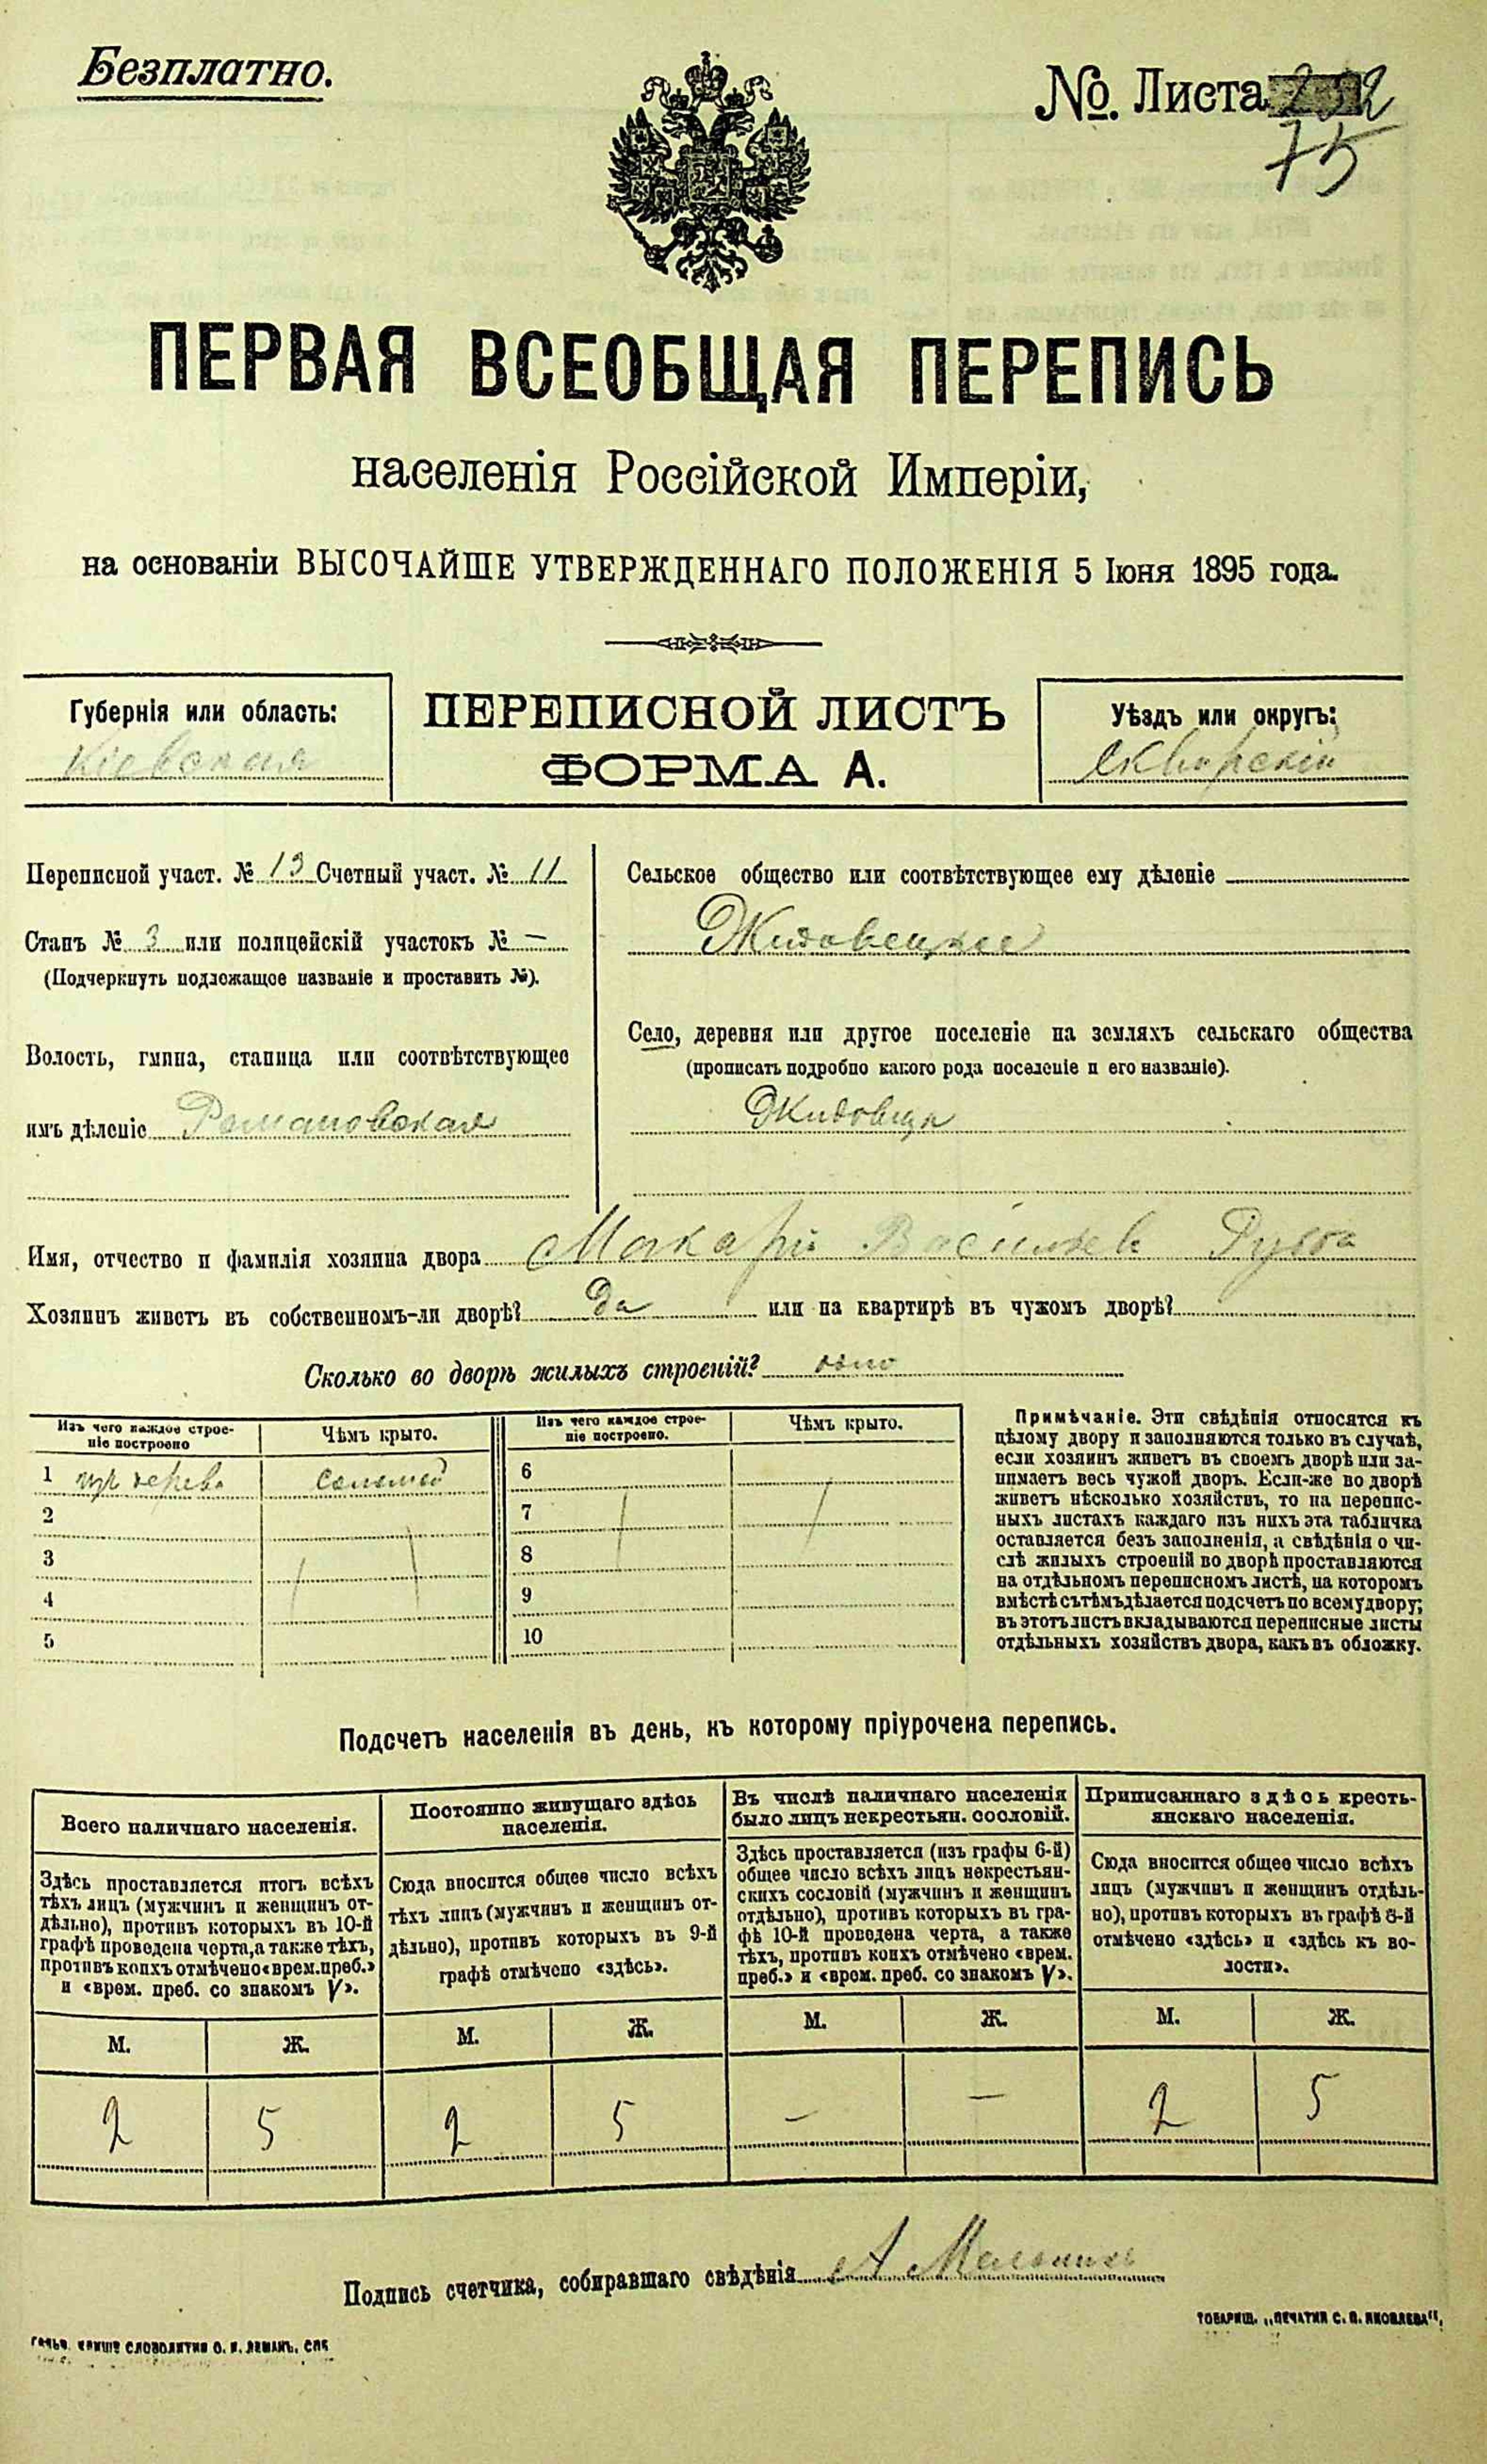 Безплатно.
№. Листа 232
75
ПЕРВАЯ ВСЕОБЩАЯ ПЕРЕПИСЬ
населенія Россійской Имперіи,
на основаніи ВЫСОЧАЙШЕ УТВЕРЖДЕННАГО ПОЛОЖЕНІЯ 5 Іюня 1895 года.
Губернія или область:
Кіевская
ПЕРЕПИСНОЙ ЛИСТЪ
ФОРМА А.
Уѣздъ или округъ:
Сквирскій
Переписной участ. № 13 Счетный участ. № 11
Станъ № 3 или полицейскій участокъ № —
(Подчеркнуть подлежащее названіе и проставить №).
Волость, гмина, станица или соотвѣтствующее
имъ дѣленіе Романовская
Сельское общество или соотвѣтствующее ему дѣленіе
Жидовецкое
Село, деревня или другое поселеніе на земляхъ сельскаго общества
(прописать подробно какого рода поселеніе и его названіе).
Жидовци
Имя, отчество и фамилія хозяина двора Макарій Васильев
Хозяинъ живетъ въ собственномъ-ли дворѣ? Да или на квартирѣ въ чужомъ дворѣ?
Сколько во дворѣ жилыхъ строеній? одно
Изъ чего каждое строе-
ніе построено
Чѣмъ крыто.
Изъ чего каждое строе-
ніе построено.
Чѣмъ крыто.
1 изъ дерева соломой
2
3
4
5
6
7
8
9
10
Примѣчаніе. Эти свѣдѣнія относятся къ
цѣлому двору и заполняются только въ случаѣ,
если хозяинъ живетъ въ своемъ дворѣ или за-
нимаетъ весь чужой дворъ. Если-же во дворѣ
живетъ нѣсколько хозяйствъ, то на перепис-
ныхъ листахъ каждаго изъ нихъ эта табличка
оставляется безъ заполненія, а свѣдѣнія о чи-
слѣ жилыхъ строеній во дворѣ проставляются
на отдѣльномъ переписномъ листѣ, на которомъ
вмѣстѣ съ тѣмъ дѣлается подсчетъ по всему двору;
въ этотъ листъ вкладываются переписные листы
отдѣльныхъ хозяйствъ двора, какъ въ обложку.
Подсчетъ населенія въ день, къ которому пріурочена перепись.
Всего наличнаго населенія.
Здѣсь проставляется итогъ всѣхъ
тѣхъ лицъ (мужчинъ и женщинъ от-
дѣльно), противъ которыхъ въ 10-й
графѣ проведена черта, а также тѣхъ,
противъ коихъ отмѣчено «врем. преб.»
и «врем. преб. со знакомъ V».
М. Ж.
2 5
Постоянно живущаго здѣсь
населенія.
Сюда вносится общее число всѣхъ
тѣхъ лицъ (мужчинъ и женщинъ от-
дѣльно), противъ которыхъ въ 9-й
графѣ отмѣчено «здѣсь».
М. Ж.
2 5
Въ числѣ наличнаго населенія
было лицъ некрестьян. сословій.
Здѣсь проставляется (изъ графы 6-й)
общее число всѣхъ лицъ некрестьян-
скихъ сословій (мужчинъ и женщинъ
отдѣльно), противъ которыхъ въ гра-
фѣ 10-й проведена черта, а также
тѣхъ, противъ коихъ отмѣчено «врем.
преб.» и «врем. преб. со знакомъ V».
М. Ж.
— —
Приписаннаго здѣсь кресть-
янскаго населенія.
Сюда вносится общее число всѣхъ
лицъ (мужчинъ и женщинъ отдѣль-
но), противъ которыхъ въ графѣ 8-й
отмѣчено «здѣсь» и «здѣсь къ во-
лости».
М. Ж.
2 5
Подпись счетчика, собиравшаго свѣдѣнія А Мельникъ
ТОВАРИЩ. „ПЕЧАТНЯ С. П. ЯКОВЛЕВА“,
СЛОВОЛИТНИ О. И. ЛЕМАНЪ. СПБ